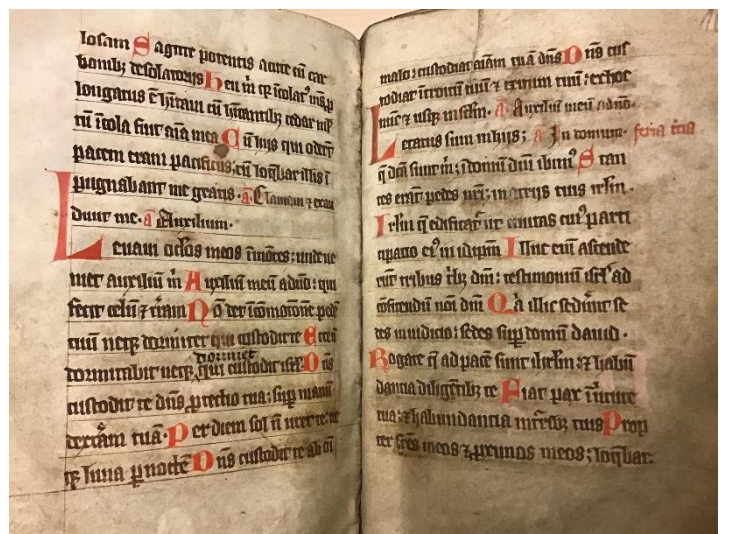 losam Sagitte potentis acute cū car
bonib; desolatoriis Heu m̄ q̄ ĩcolat' m̄s p
longatus ē h̄itaui cū h̄itantib; cedar ml'
tū ĩcola fuit aīa mea Cū hiis qui oder̄
pacem eram pacificus; cū loq̄bar illis ĩ
pugnabant me gratis. a. Clamaui ⁊ exau
diuit me. a Auxilium.
Leuaui oc̄los meos ĩ mōtes; unde ue
niet auxiliū m̄ Auxiliū meū a dn̄o; qui
fecit celū ⁊ t̄ram Nō det ĩ cōmotōnē pedē
tuū neq; dormitet qui custodit te Ecce nō
dormitabit neq; dormiet qui custodit isrl̄ Dn̄s
custodit te dn̄s ꝓtectio tua; suꝑ manū
dexterā tuā. Per diem sol n̄ uret te; ne
q; luna ꝑ noctē Dn̄s custodit te ab oī
malo; custodiat aīam tuā dn̄s Dn̄s cus
todiat ĩtroitū tuū ⁊ exitum tuū; ex hoc
nūc ⁊ usq; in sc̄lm. a. Auxiliū meū a dn̄o.
Letatus sum in hiis; a In domum. feria t̄cia
q̄ dc̄a sunt m̄; ĩ domū dn̄i ibim' Stan
tes erāt pedes nr̄i; in atriis tuis irl̄m.
Irl̄m q̄ edificat̄ ut ciuitas cui' parti
cipatio ei' in idip̄m Illuc eni᷒ ascende
rūt tribus tb' dn̄i; testimoniū isrl̄ ad
cōfitendū noī dn̄i Q̄a illic sedr̄unt se
des in iudicio; sedes suꝑ domū dauid.
Rogate q̄ ad pacē sunt ilrl̄m; ⁊ habū
dancia diligētib; te Fiat pax ĩ uirtute
tua; ⁊ habundantia ĩ turrib; tuis Prop
ter fr̄es meos ⁊ ꝓximos meos; loq̄bar.